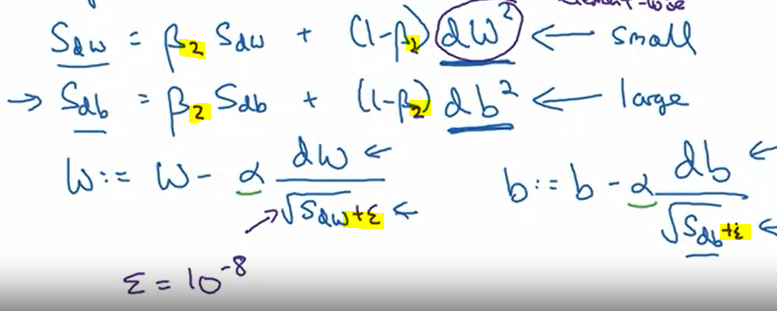 element-wise
S_dw = β_2 S_dw + (1-β_2) dW^2 ← small
→ S_db = β_2 S_db + (1-β_2) db^2 ← large
W := W - α dW / √S_dw + ε ← b := b - α db / √S_db + ε ←
ε = 10^-8